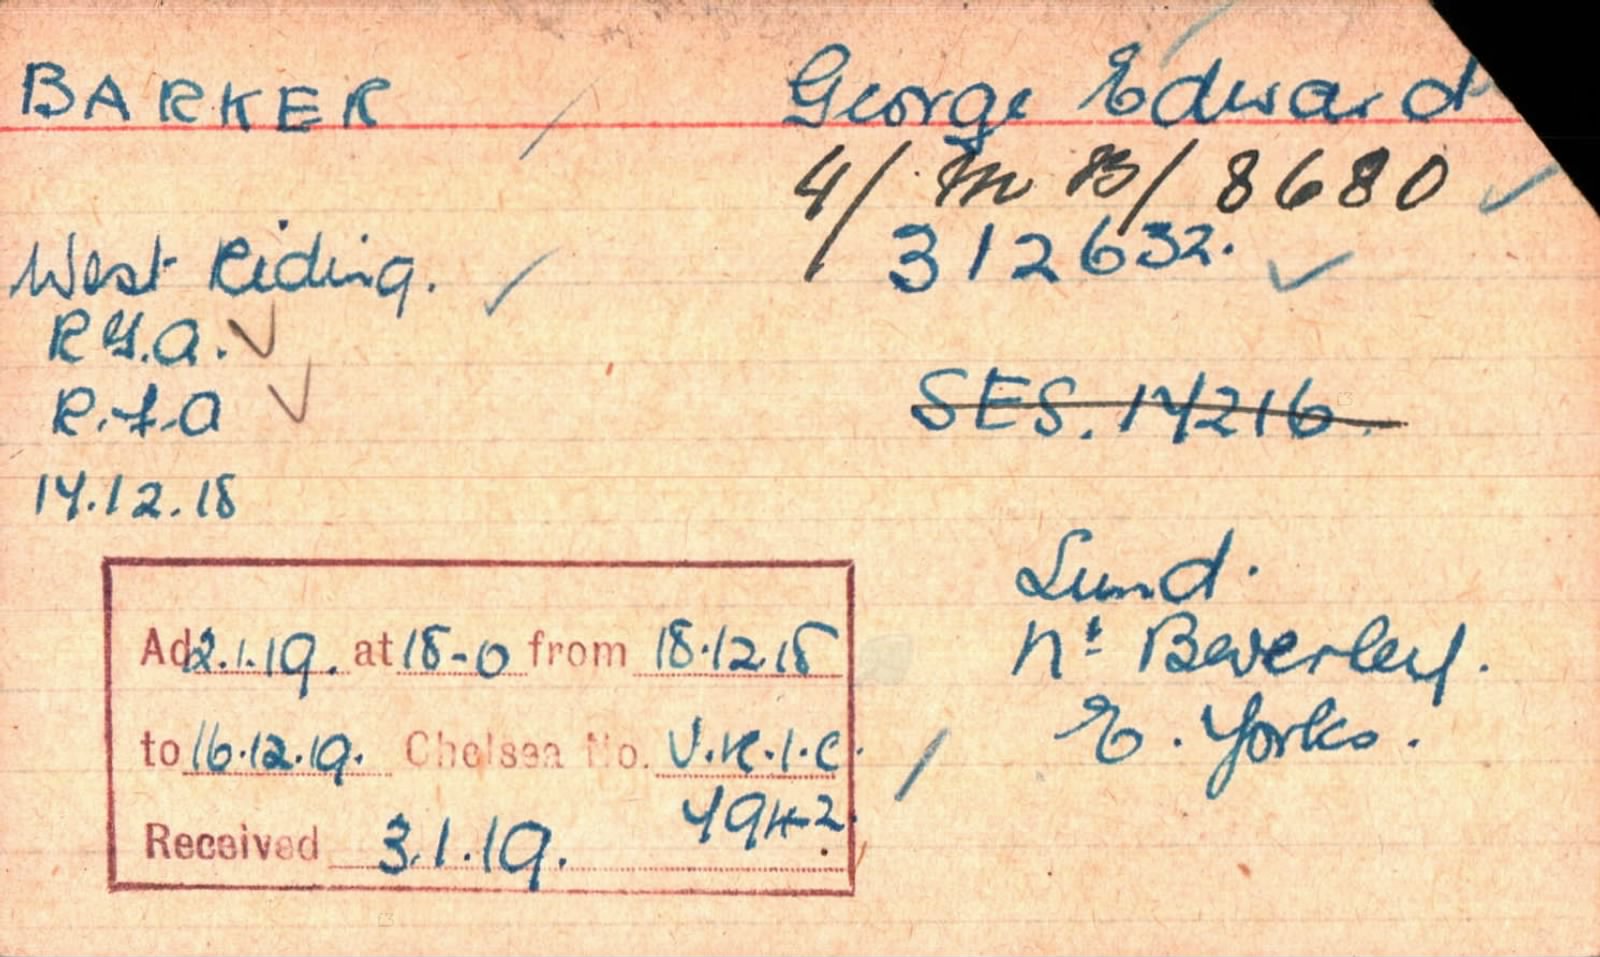 BARKER George Edward
4/MB/8680
West Riding. 312632.
R.G.A.
R.F.A SES. 14216.
14.12.18
Lund.
Nr Beverley.
E. Yorks.
Ad 2.1.19. at 18-0 from 18.12.18
to 16.12.19. Chelsea No. V.R.I.C.
4942
Received 3.1.19.